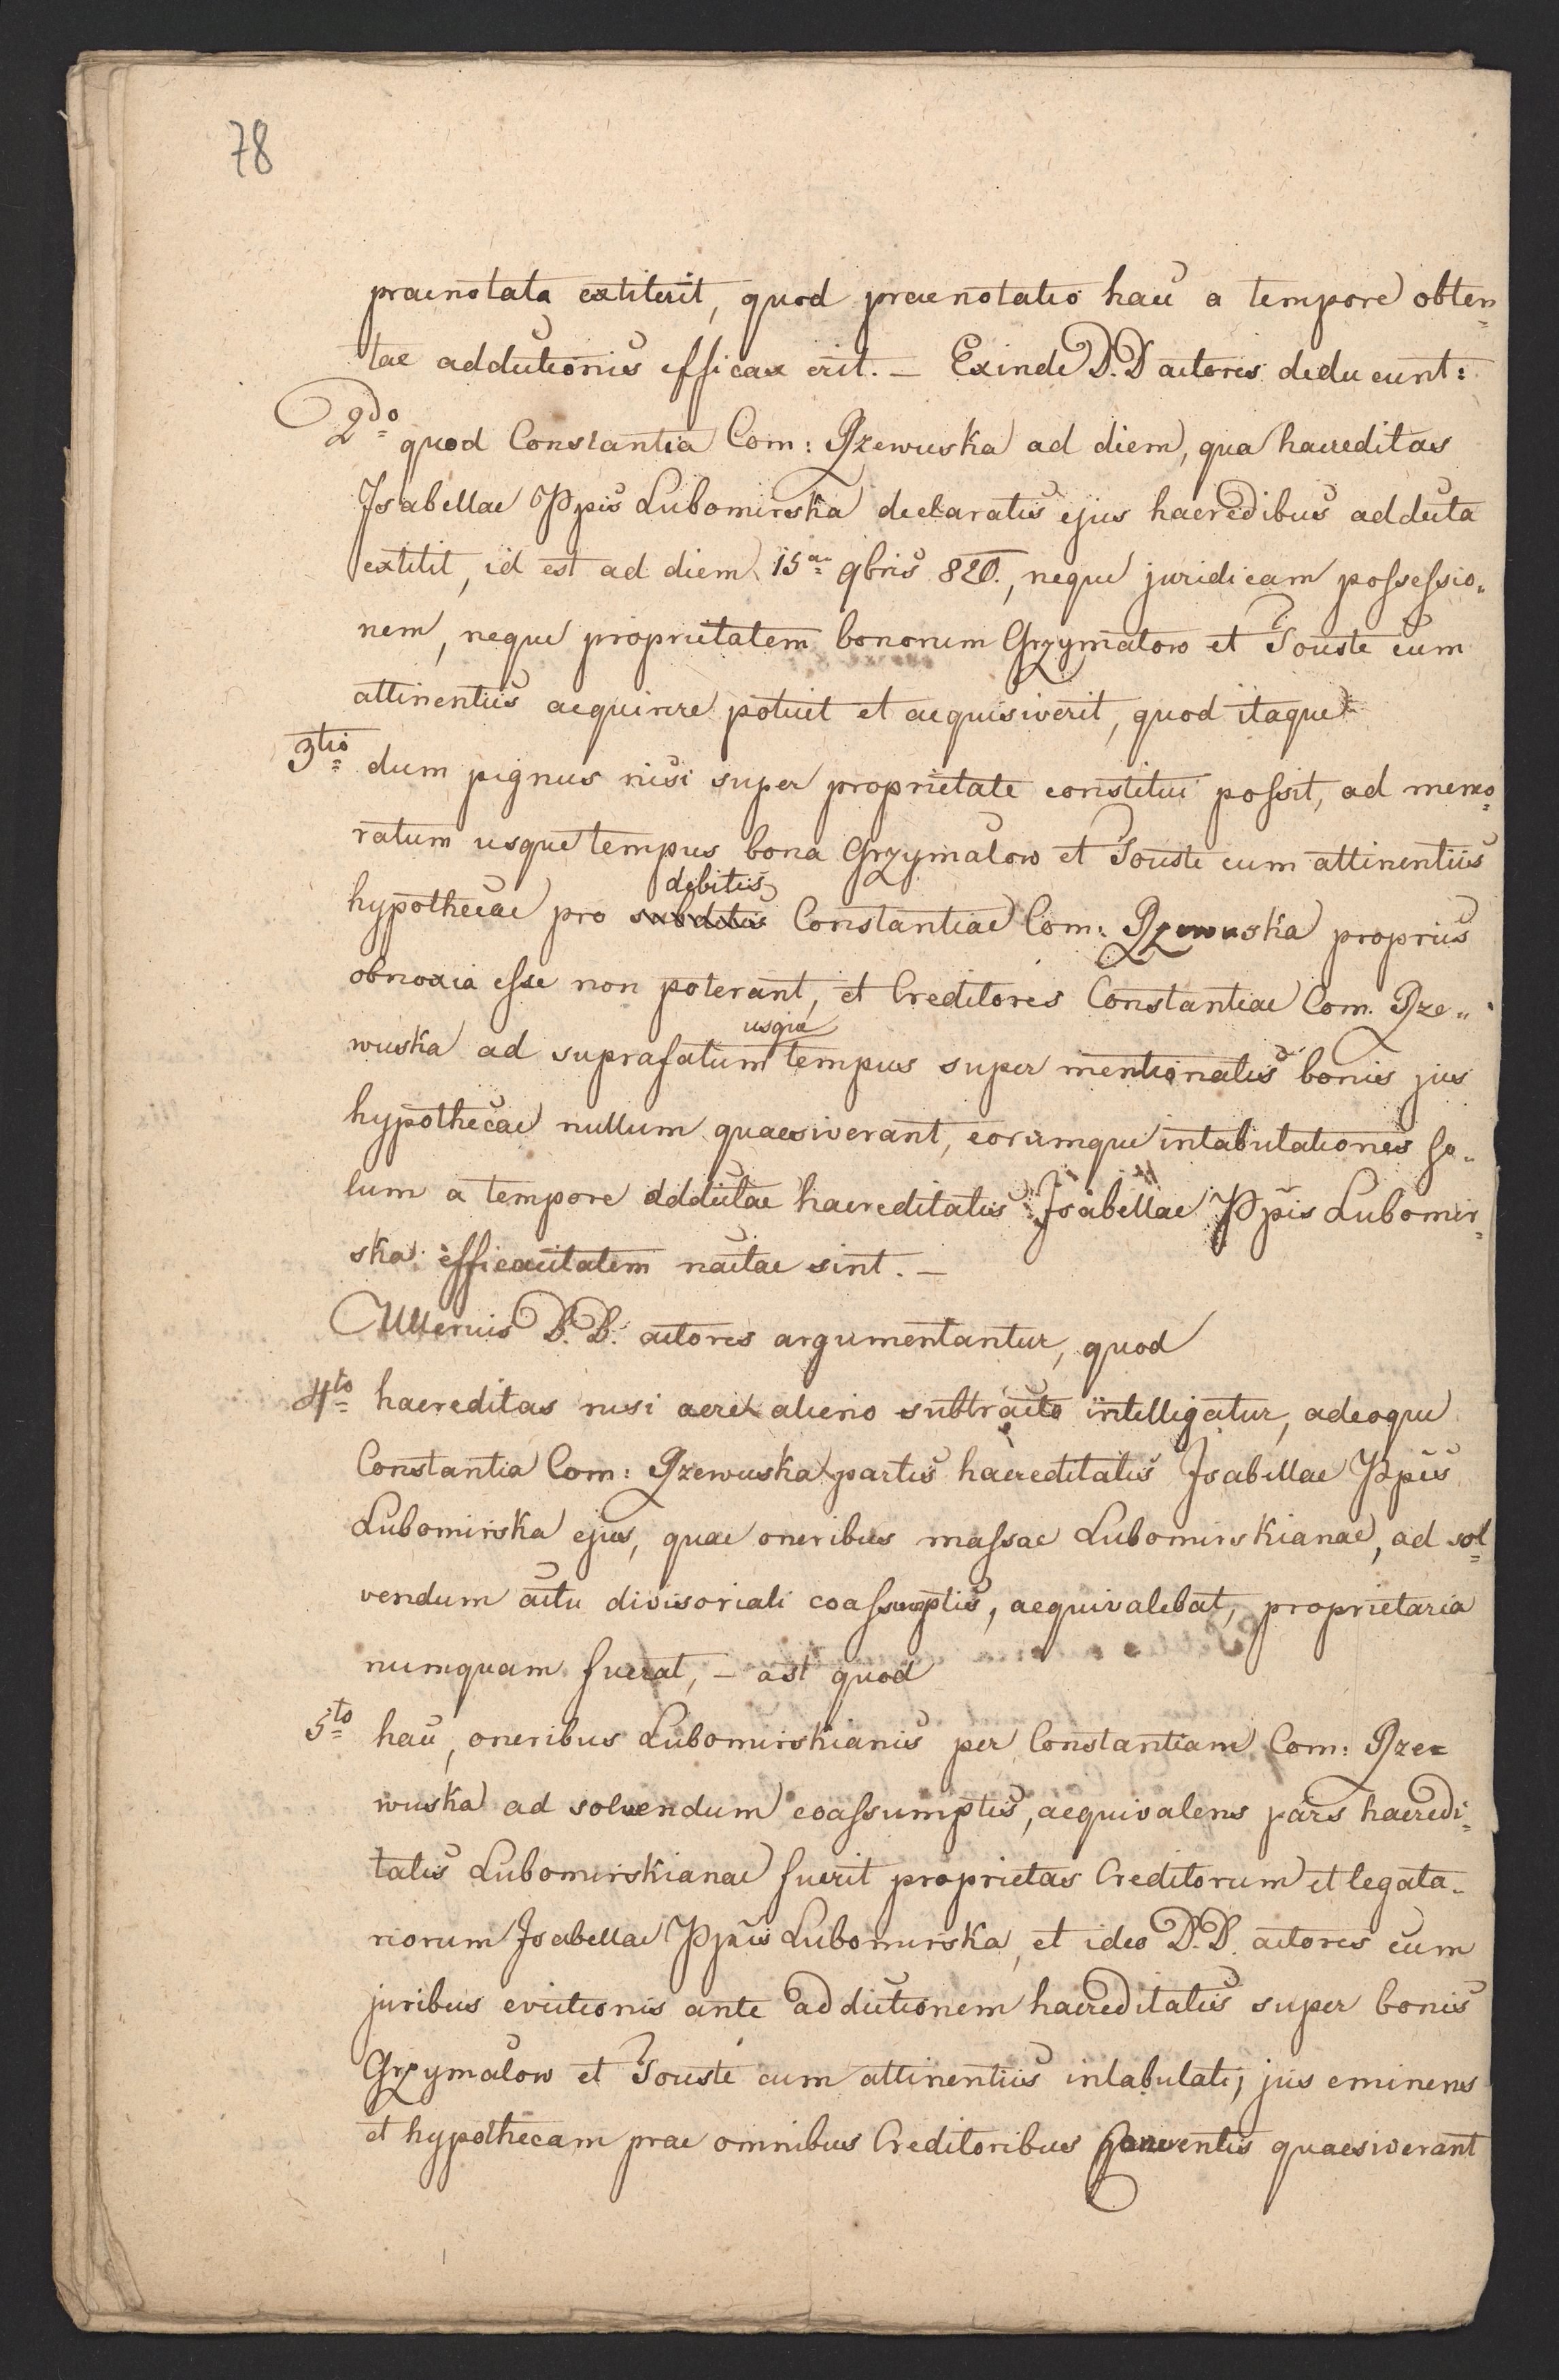 78
praenotata extiterit, quod praenotatio haec a tempore obten=
tae addictionis efficax erit. — Exinde D. D actores deducunt:
2do quod Constantia Com: Rzewuska ad diem, qua haereditas
Isabellae Ppis Lubomirska declaratis ejus haeredibus addicta
extitit, id est ad diem 15a 9bris 820., neque juridicam possessio=
nem, neque proprietatem bonorum Grzymalow et Touste cum
attinentiis acquirere potuit et acquisiverit, quod itaque
3tio dum pignus nisi super proprietate constitui possit, ad memo=
ratum usque tempus bona Grzymalow et Touste cum attinentiis
debitis
hypothecae pro subditis Constantiae Com: Rzewuska propriis
obnoxia esse non poterant, et Creditores Constantiae Com. Rze=
usque
wuska ad suprafatum tempus super mentionatis bonis jus
hypothecae nullum quaesiverant, eorumque intabulationes so=
lum a tempore addictae haereditatis Isabellae Ppis Lubomir=
ska efficacitatem nactae sint. —
Ulterius D. D. actores argumentantur, quod
4to haereditas nisi aere alieno subtracto intelligatur, adeoque
Constantia Com: Rzewuska partis haereditatis Isabellae Ppis
Lubomirska ejus, quae oneribus massae Lubomirskianae, ad sol=
vendum actu divisoriali coassumptis, aequivalebat, proprietaria
numquam fuerat, — ast quod
5to haec, oneribus Lubomirskianis per Constantiam Com: Rze=
wuska ad solvendum coassumptis, aequivalens pars haeredi=
tatis Lubomirskianae fuerit proprietas Creditorum et legata=
riorum Isabellae Ppis Lubomirska, et ideo D. D. actores cum
juribus evictionis ante addictionem haereditatis super bonis
Grzymalow et Touste cum attinentiis intabulati, jus eminens
et hypothecam prae omnibus Creditoribus conventis quaesiverant